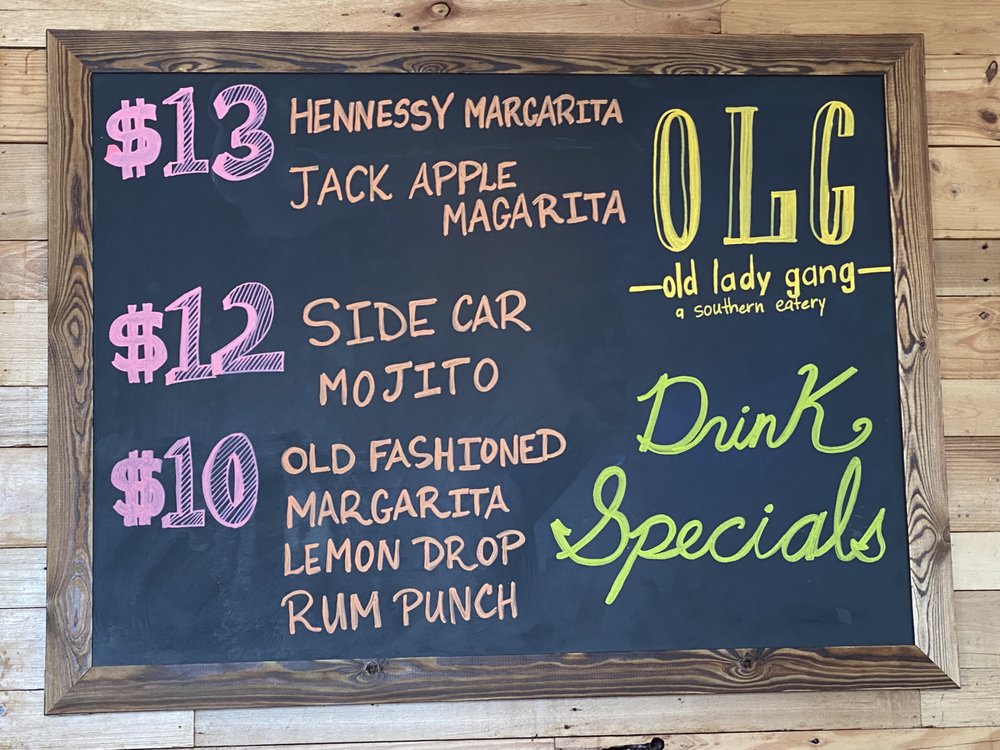 $13 HENNESSY MARGARITA
JACK APPLE
MAGARITA
$12 SIDE CAR
MOJITO
$10 OLD FASHIONED
MARGARITA
LEMON DROP
RUM PUNCH
OLG
old lady gang
a southern eatery
Drink
Specials